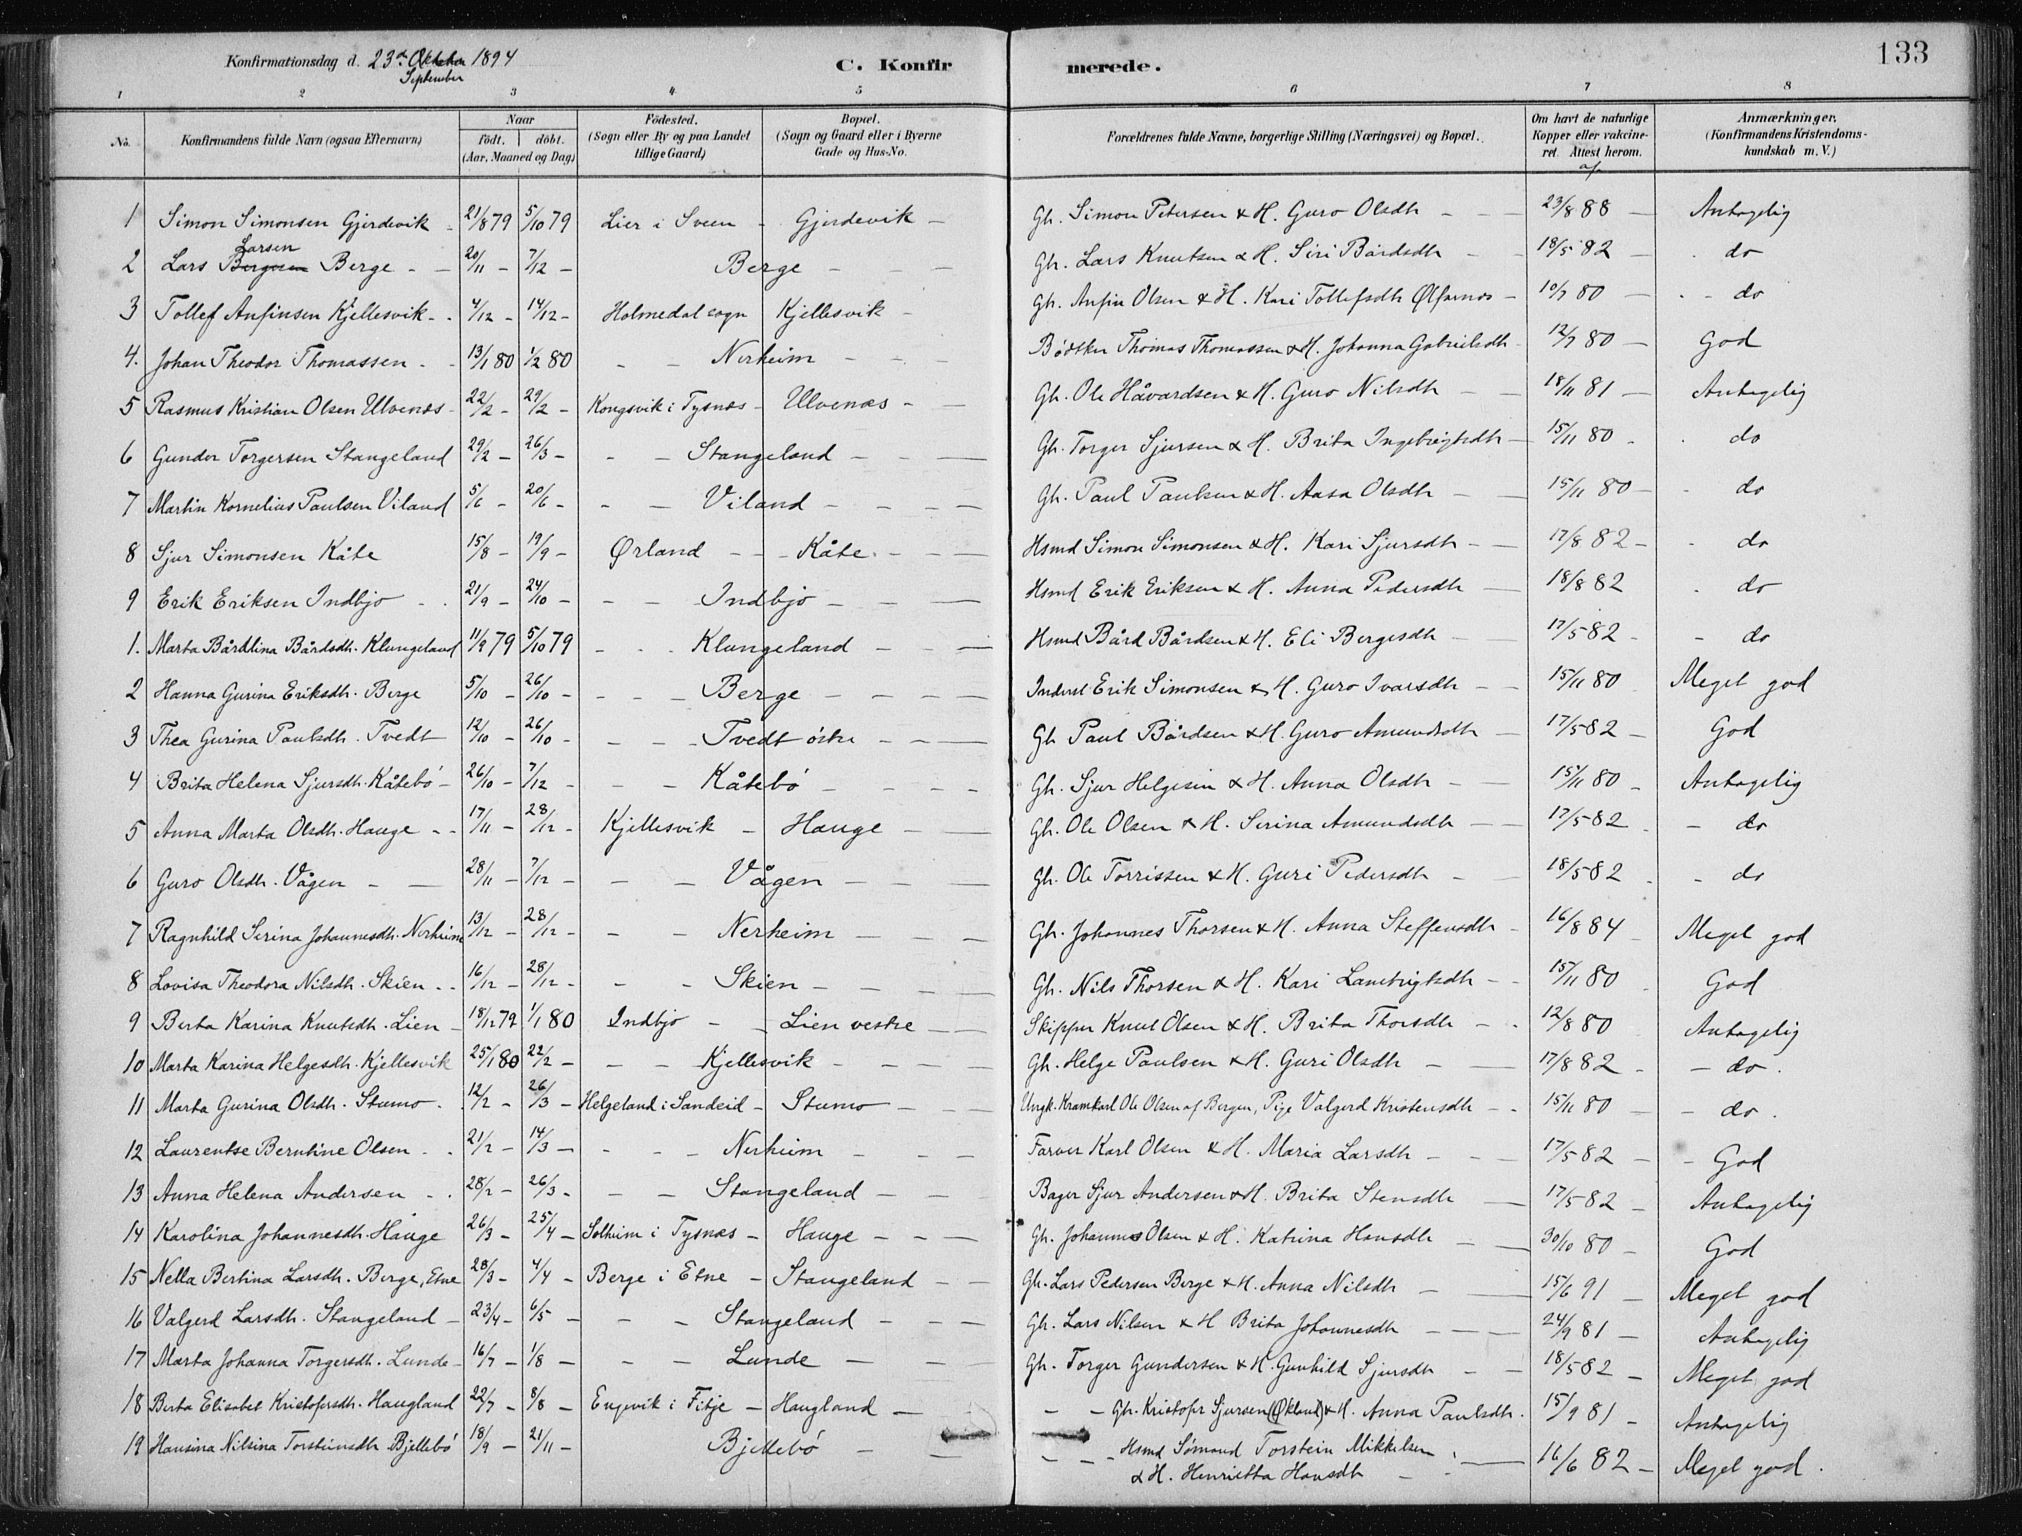 Konfirmationsdag d. 23de Oktober 1894 C. Konfirmerede. 133
September
1 2 3 4 5 6 7 8
No. Konfirmandens fulde Navn (ogsaa Efternavn) Naar født. døbt. (Aar, Maaned og Dag) Fødested. (Sogn eller By og paa Landet tillige Gaard) Bopæl. (Sogn og Gaard eller i Byerne Gade og Hus-No. Forældrenes fulde Navne, borgerlige Stilling (Næringsvei) og Bopæl. Om havt de naturlige Kopper eller vakcineret. Attest herom. af Anmærkninger. (Konfirmandens Kristendomskundskab m. V.)
1 Simon Simonsen Gjerdevik 21/8 79 5/10 79 Lier i Sveen - Gjerdevik - Gh. Simon Petersen & H. Guro Olsdh - 23/8 88 - Antagelig
Larsen
2 Lars Bergesen Berge - 20/11 - 7/12 - Berge - Gh. Lars Knutsen & H. Siri Bårdsdh - 18/5 82 - do
3 Tollef Anfinsen Kjellesvik - 4/12 - 14/12 - Holmedal sogn Kjellesvik - Gh. Anfin Olsen & H. Kari Tollefsdh Ølfarnes - 10/7 80 - do
4. Johan Theodor Thomassen - 13/1 80 1/2 80 - - Nerheim - Bødtker Thomas Thomassen & H. Johanna Gabrielsdh - 12/7 80 - God
5 Rasmus Kristian Olsen Ulvenæs - 22/2 - 29/2 - Kongsvik i Tysnæs - Ulvenæs - Gh. Ole Håvardsen & H. Guro Nilsdh - 18/11 81 - Antagelig
6 Gunder Torgersen Stangeland 29/2 - 26/3 - - - Stangeland - Gh. Torger Sjursen & H. Brita Ingebrigtsdh - 15/11 80 - do
7 Martin Kornelius Paulsen Viland 5/6 - 20/6 - - - Viland - Gh. Paul Paulsen & H. Aasa Olsdh - 15/11 80 - do
8 Sjur Simonsen Kåte 15/8 - 19/9 - Ørland - - Kåte - Hsmd Simon Simonsen & H. Kari Sjursdh - 17/8 82 - do
9 Erik Eriksen Indbjo - 21/9 - 24/10 - - - Indbjo - Hsmd Erik Eriksen & H. Anna Pedersdh - 18/8 82 - do
1. Marta Bårdlina Bårdsdh. Klungeland 11/9 79 5/10 79 - - Klungeland - Hsmd Bård Bårdsen & H. Eli Bergesdh - 17/5 82 - do
2 Hanna Gurina Eriksdh. Berge 5/10 - 26/10 - - - Berge - Inderst Erik Simonsen & H. Guro Ivarsdh - 15/11 80 Meget god
3 Thea Gurina Paulsdh. Tvedt 12/10 - 26/10 - - - Tvedt østre - Gh Paul Bårdsen & H. Guro Amundsdh - 17/5 82 - God
4 Brita Helena Sjursdh. Kåtebö - 26/10 - 7/12 - - - Kåtebö - Gh. Sjur Helgesen & H. Anna Olsdh - 15/11 80 - Antagelig
5 Anna Marta Olsdh. Hauge - 17/11 - 28/12 - Kjellesvik - Hauge - Gh. Ole Olsen & H. Serina Amundsdh - 17/5 82 - do
6 Guro Olsdh. Vågen - 28/11 - 7/12 - - - Vågen - Gh. Ole Torrissen & H. Guri Pedersdh - 18/5 82 - do
7 Ragnhild Serina Johannesdh. Nerheim 13/12 - 28/12 - - - Nerheim - Gh. Johannes Thorsen & H. Anna Steffensdh - 16/8 84 - Meget god
8 Lovisa Theodora Nilsdh. Skien - 16/12 - 28/12 - - - Skien - Gh. Nils Thorsen & H. Kari Lambrigtsdh - 15/11 80 God
9 Berta Karina Knutsdh. Lien - 18/12 79 1/1 80 Indbjo - - Lien vestre - Skipper Knut Olsen & H. Brita Thorsdh - 12/8 80 Antagelig
10 Marta Karina Helgesdh. Kjellesvik 25/1 80 22/2 - - - Kjellesvik - Gh. Helge Paulsen & H. Guri Olsdh - 17/8 82 - do.
11 Marta Gurina Olsdh. Stumo. 12/2 - 26/3 - Helgeland i Sandeid - Stumo - Ungk. Kramkarl Ole Olsen af Bergen, Pige Valgerd Kristensdh - 15/11 80 - do.
12 Laurentse Berntine Olsen - 21/2 - 14/3 - - - Nerheim - Farver Karl Olsen & H. Maria Larsdh - 17/5 82 - God
13 Anna Helena Andersen - 28/2 - 26/3 - - - Stangeland - Bager Sjur Andersen & H. Brita Stensdh - 17/5 82 - Antagelig
14 Karolina Johannesdh. Hauge 26/3 - 25/4 - Solheim i Tysnæs - Hauge - Gh. Johannes Olsen & H. Katrina Hansdh - 30/10 80 - God
15 Nella Bertina Larsdh. Berge, Etne 28/3 - 4/4 - Berge i Etne - Stangeland - Gh. Lars Pedersen Berge & H. Anna Nilsdh - 15/6 91 - Meget god
16 Valgerd Larsdh. Stangeland - 23/4 - 6/5 - - - Stangeland - Gh. Lars Nilsen & H Brita Johannesdh - 24/9 81 - Antagelig
17 Marta Johanna Torgersdh. Lunde - 16/7 - 1/8 - - - Lunde - Gh. Torger Gundersen & H. Gunhild Sjursdh - 18/5 82 - Meget god
18 Berta Elisabet Kristofersdh. Haugland 22/7 - 8/8 - Engevik i Fitje - Haugland - - - Gh. Kristofer Sjursen (Økland) & H. Anna Paulsdh. 15/9 81 - Antagelig
19 Hansina Nilsina Torsteinsdh Bjellebö 18/9 - 21/11 - Bjellebö - - - Hsmd Sømand Torstein Mikkelsen
& H. Henrietta Hansdh - 16/6 82 - Meget god.